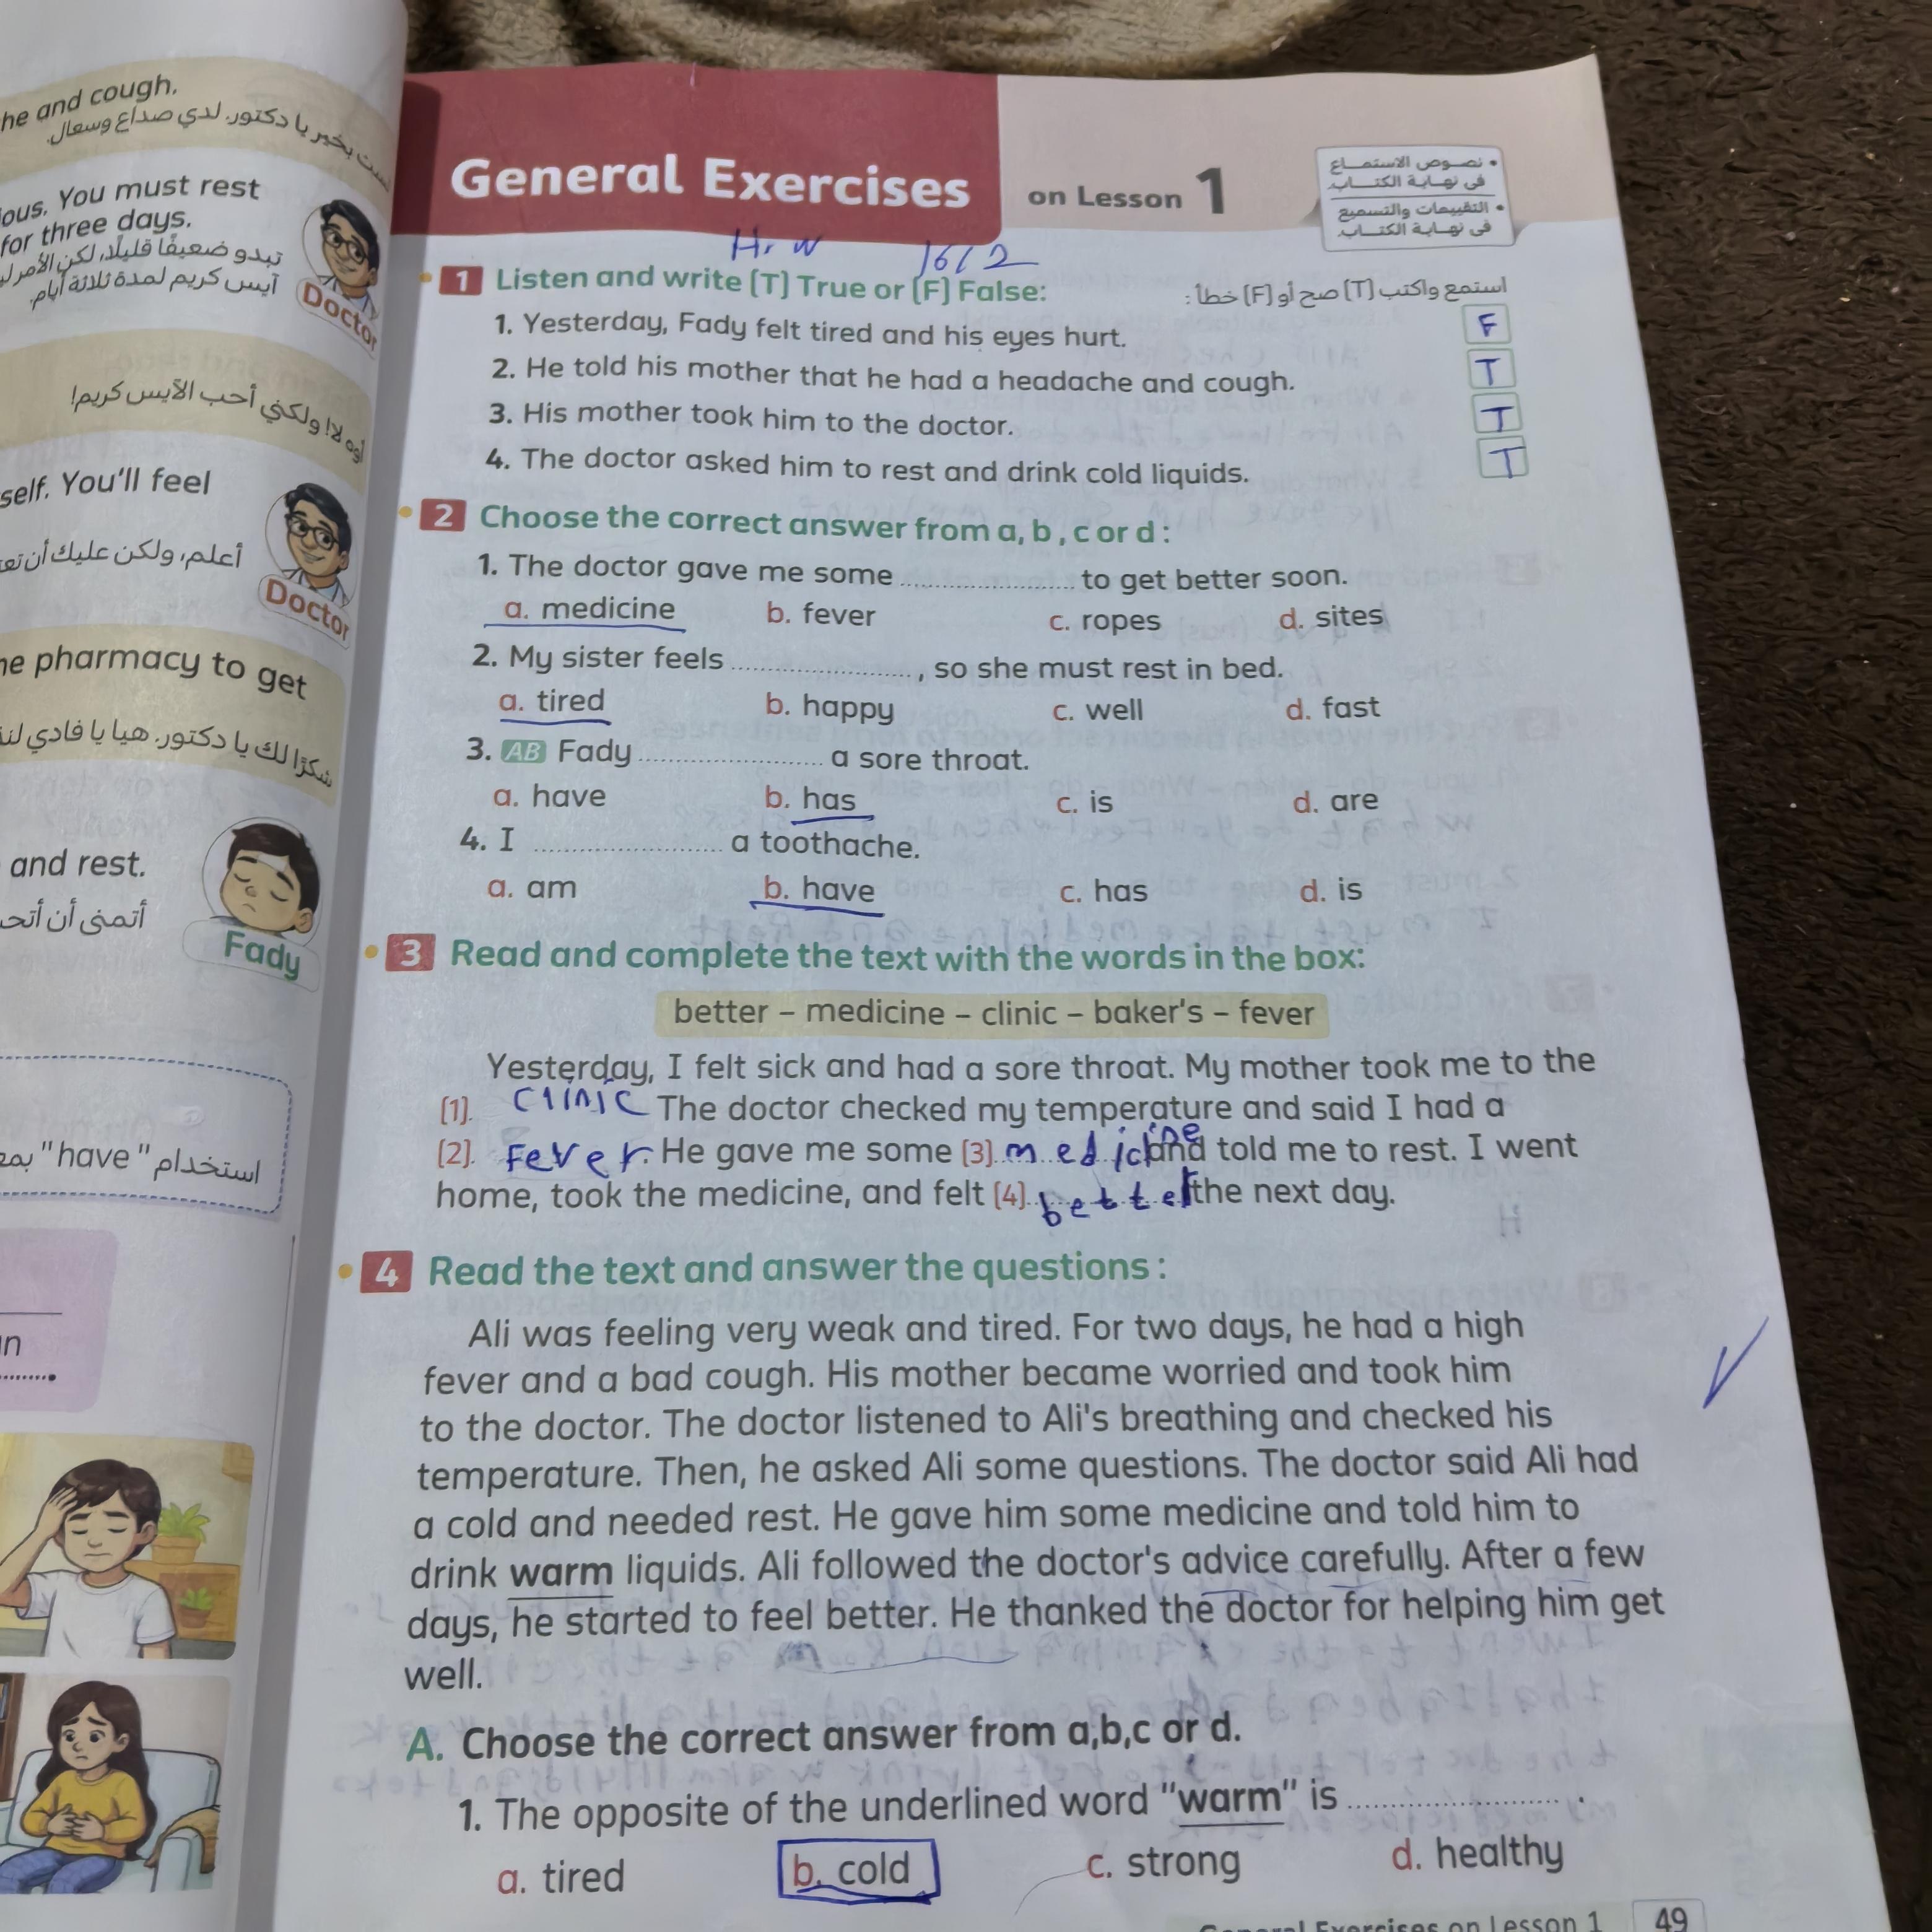 he and cough.
لست بخير يا دكتور. لدي صداع وسعال.
ous. You must rest
for three days.
تبدو ضعيفًا قليلًا، لكن الأمر
آيس كريم لمدة ثلاثة أيام.
Doctor
أوه لا! ولكني أحب الآيس كريم!
self. You'll feel
أعلم، ولكن عليك أن
Doctor
he pharmacy to get
شكرًا لك يا دكتور. هيا يا فادي
and rest.
أتمنى أن
Fady
استخدام "have"
General Exercises on Lesson 1
• نصوص الاستماع
في نهاية الكتاب
• التقييمات والتسميع
في نهاية الكتاب
H.W 16/2
1 Listen and write [T] True or [F] False:
استمع واكتب [T] صح أو [F] خطأ :
1. Yesterday, Fady felt tired and his eyes hurt. F
2. He told his mother that he had a headache and cough. T
3. His mother took him to the doctor. T
4. The doctor asked him to rest and drink cold liquids. T
2 Choose the correct answer from a, b , c or d :
1. The doctor gave me some .................... to get better soon.
a. medicine b. fever c. ropes d. sites
2. My sister feels ...................., so she must rest in bed.
a. tired b. happy c. well d. fast
3. AB Fady .................... a sore throat.
a. have b. has c. is d. are
4. I .................... a toothache.
a. am b. have c. has d. is
3 Read and complete the text with the words in the box:
better – medicine – clinic – baker's – fever
Yesterday, I felt sick and had a sore throat. My mother took me to the
[1]. clinic The doctor checked my temperature and said I had a
[2]. Fever. He gave me some [3] medicine and told me to rest. I went
home, took the medicine, and felt [4] better the next day.
4 Read the text and answer the questions :
Ali was feeling very weak and tired. For two days, he had a high
fever and a bad cough. His mother became worried and took him
to the doctor. The doctor listened to Ali's breathing and checked his
temperature. Then, he asked Ali some questions. The doctor said Ali had
a cold and needed rest. He gave him some medicine and told him to
drink warm liquids. Ali followed the doctor's advice carefully. After a few
days, he started to feel better. He thanked the doctor for helping him get
well.
A. Choose the correct answer from a,b,c or d.
1. The opposite of the underlined word "warm" is .................... .
a. tired b. cold c. strong d. healthy
General Exercises on Lesson 1 49